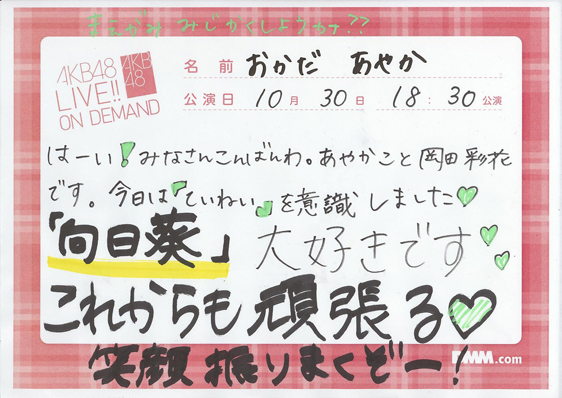 まえがみ みじかくしようかナ??
AKB48
LIVE!!
ON DEMAND
AKB
48
名前 おかだ あやか
公演日 10月30日 18:30公演
はーい!みなさんこんばんわ。あやかこと岡田彩花
です。今日は「ていねい」を意識しました♡
「向日葵」大好きです♡♡
これからも頑張る♡
笑顔振りまくぞー!
DMM.com